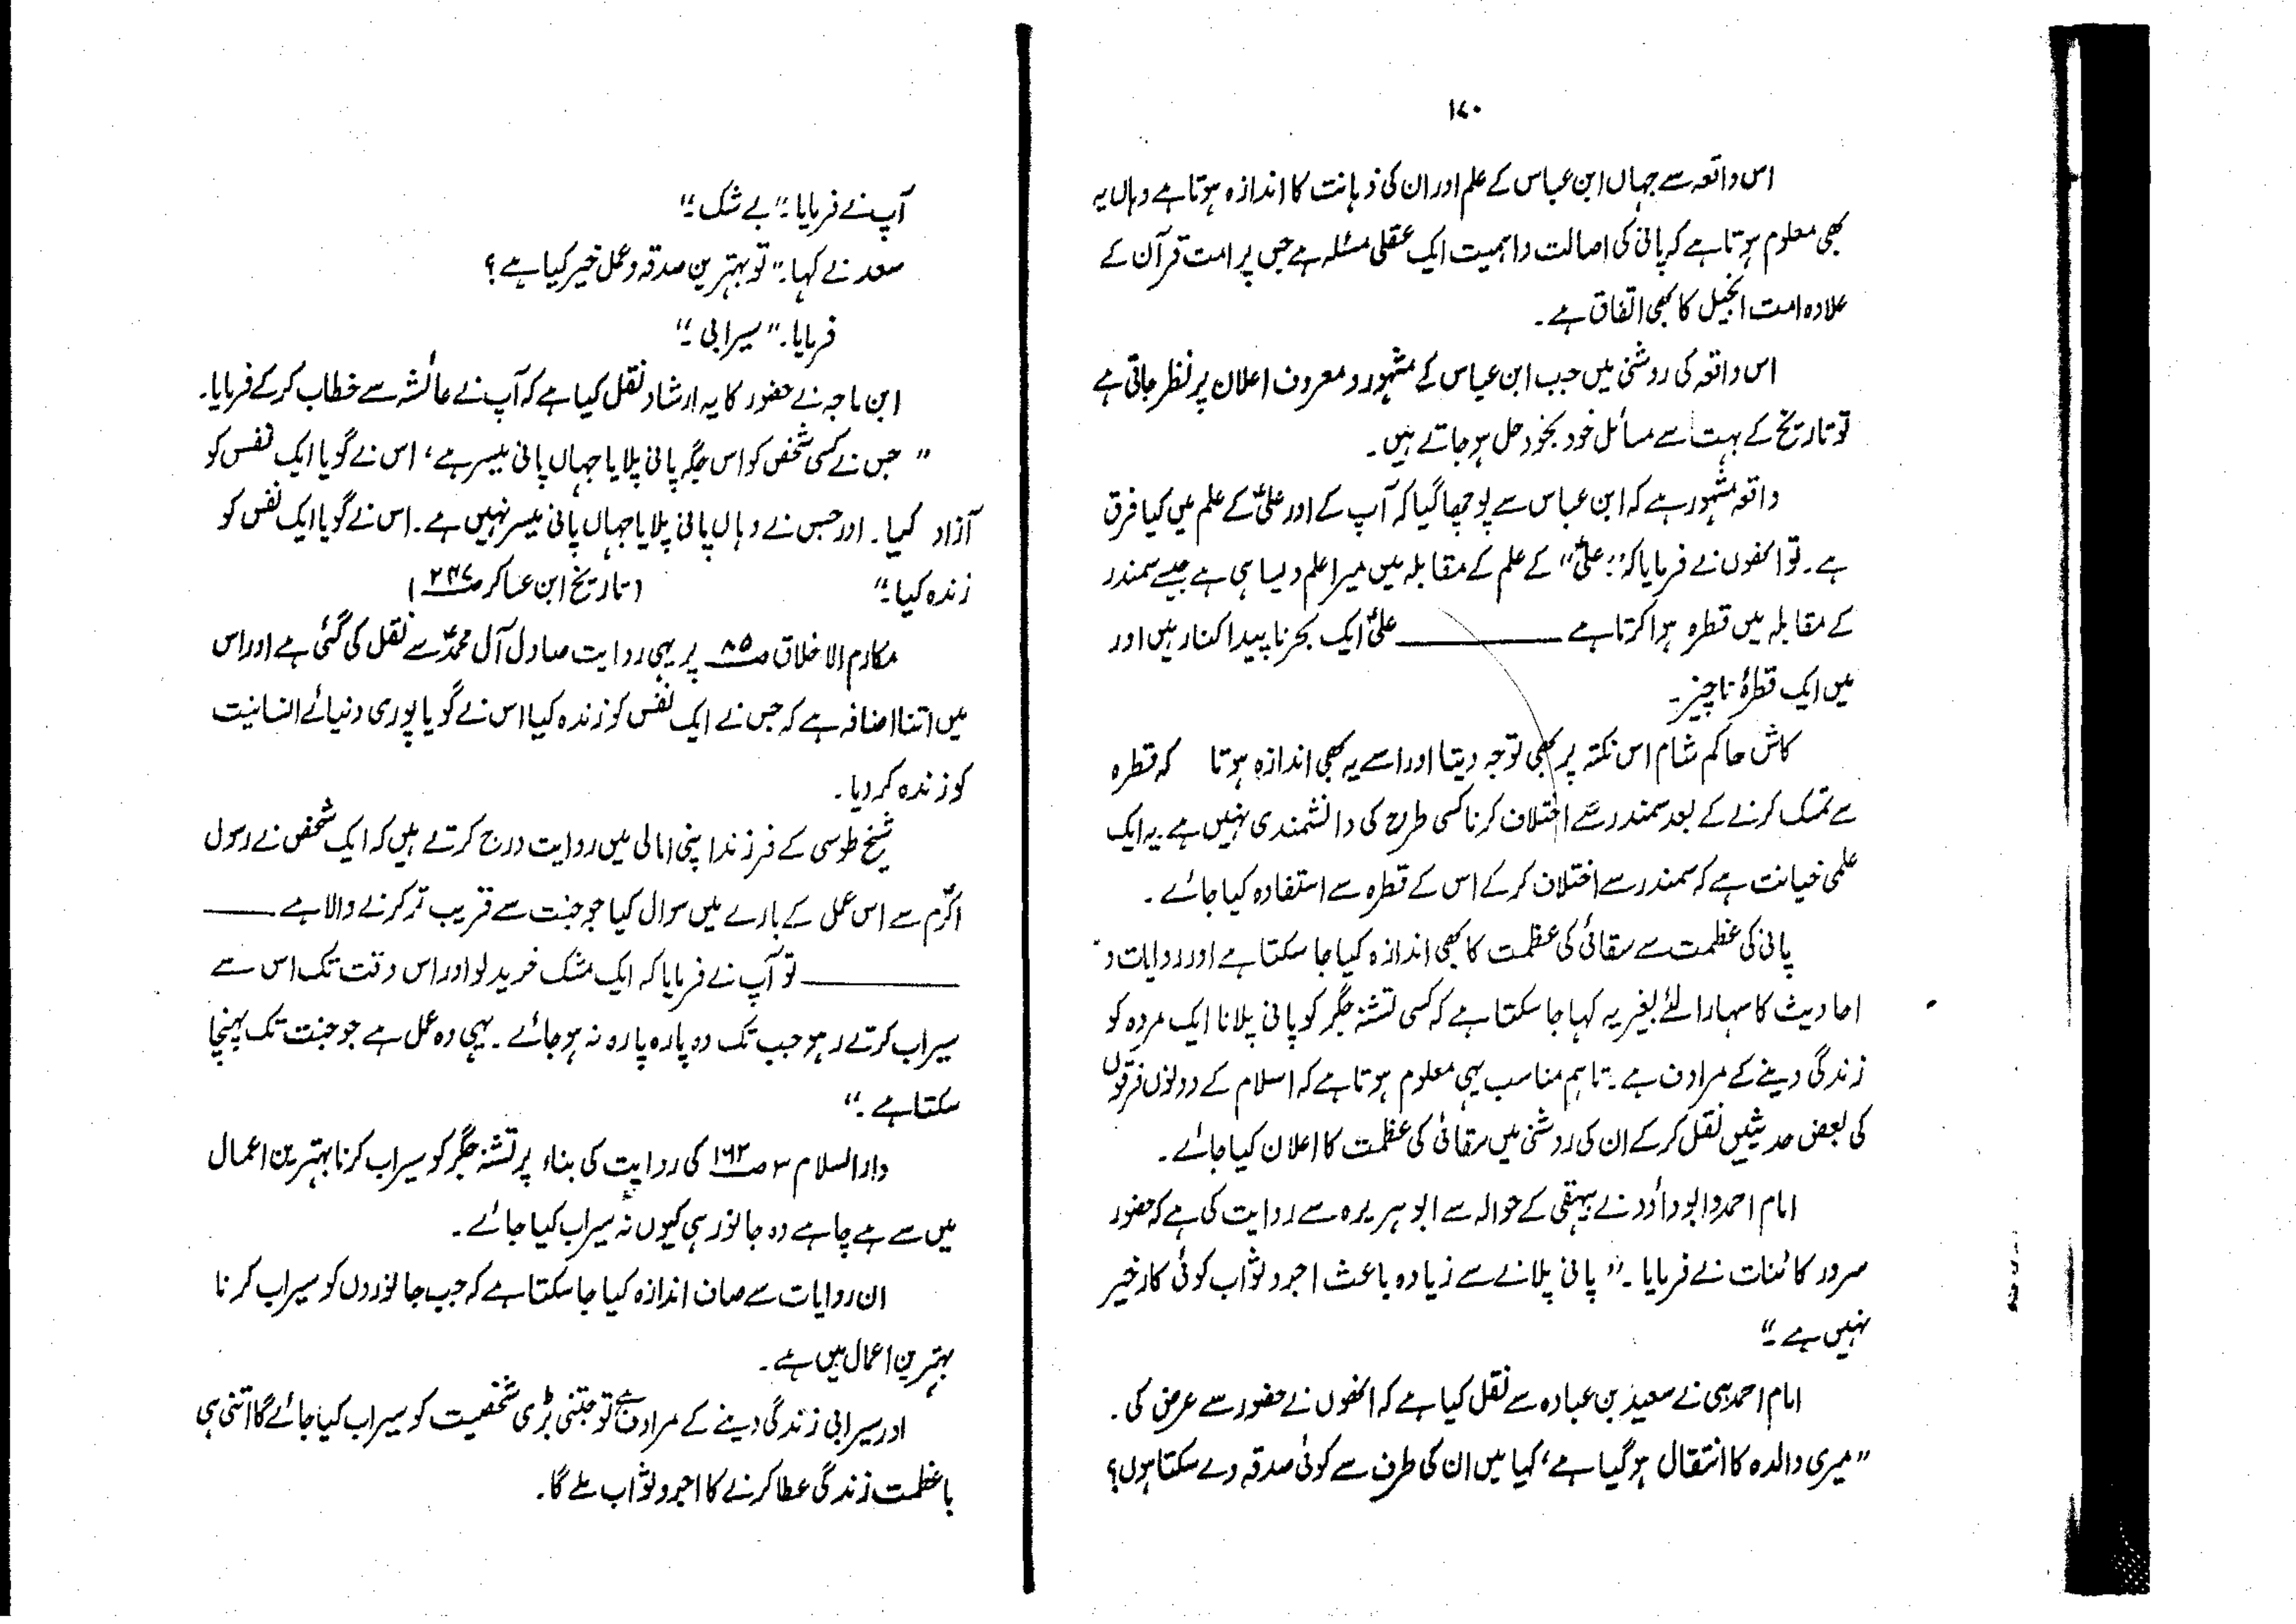 ۱۷۰
اس واقعہ سے جہاں ابن عباس کے علم اور ان کی ذہانت کا اندازہ ہوتا ہے وہاں یہ
بھی معلوم ہوتا ہے کہ پانی کی اصالت و اہمیت ایک عقلی مسئلہ ہے جس پر امت قرآن کے
علاوہ امت انجیل کا بھی اتفاق ہے۔
اس واقعہ کی روشنی میں جب ابن عباس کے مشہور و معروف اعلان پر نظر جاتی ہے
تو تاریخ کے بہت سے مسائل خود بخود حل ہو جاتے ہیں۔
واقعہ مشہور ہے کہ ابن عباس سے پوچھا گیا کہ آپ کے اور علیؑ کے علم میں کیا فرق
ہے۔ تو انھوں نے فرمایا کہ: "علیؑ" کے علم کے مقابلہ میں میرا علم ویسا ہی ہے جیسے سمندر
کے مقابلہ میں قطرہ ہوا کرتا ہے ـــــــ علیؑ ایک بحر ناپیدا کنار ہیں اور
میں ایک قطرۂ ناچیز۔
کاش حاکم شام اس نکتہ پر بھی توجہ دیتا اور اسے یہ بھی اندازہ ہوتا کہ قطرہ
سے تمسک کرنے کے بعد سمندر سے اختلاف کرنا کسی طرح کی دانشمندی نہیں ہے۔ یہ ایک
علمی خیانت ہے کہ سمندر سے اختلاف کر کے اس کے قطرہ سے استفادہ کیا جائے۔
پانی کی عظمت سے سقائی کی عظمت کا بھی اندازہ کیا جا سکتا ہے اور روایات و
احادیث کا سہارا لئے بغیر یہ کہا جا سکتا ہے کہ کسی تشنہ جگر کو پانی پلانا ایک مردہ کو
زندگی دینے کے مرادف ہے۔ تاہم مناسب یہی معلوم ہوتا ہے کہ اسلام کے دونوں فرقوں
کی بعض حدیثیں نقل کر کے ان کی روشنی میں سقائی کی عظمت کا اعلان کیا جائے۔
امام احمد و ابو داؤد نے بیہقی کے حوالہ سے ابو ہریرہ سے روایت کی ہے کہ حضور
سرور کائنات نے فرمایا۔ "پانی پلانے سے زیادہ باعث اجر و ثواب کوئی کار خیر
نہیں ہے۔"
امام احمد ہی نے سعید بن عبادہ سے نقل کیا ہے کہ انھوں نے حضور سے عرض کی۔
"میری والدہ کا انتقال ہو گیا ہے، کیا میں ان کی طرف سے کوئی صدقہ دے سکتا ہوں؟
آپ نے فرمایا۔ "بے شک۔"
سعد نے کہا۔ "تو بہترین صدقہ و عمل خیر کیا ہے؟
فرمایا۔ "سیرابی۔"
ابن ماجہ نے حضور کا یہ ارشاد نقل کیا ہے کہ آپ نے عائشہ سے خطاب کر کے فرمایا۔
"جس نے کسی شخص کو اس جگہ پانی پلایا جہاں پانی میسر ہے، اس نے گویا ایک نفس کو
آزاد کیا۔ اور جس نے وہاں پانی پلایا جہاں پانی میسر نہیں ہے۔ اس نے گویا ایک نفس کو
زندہ کیا۔" (تاریخ ابن عساکر ص۲۳۷)
مکارم الاخلاق ص۸۵ پر یہی روایت صادق آل محمدؑ سے نقل کی گئی ہے اور اس
میں اتنا اضافہ ہے کہ جس نے ایک نفس کو زندہ کیا اس نے گویا پوری دنیائے انسانیت
کو زندہ کر دیا۔
شیخ طوسی کے فرزند اپنی امالی میں روایت درج کرتے ہیں کہ ایک شخص نے رسول
اکرمؐ سے اس عمل کے بارے میں سوال کیا جو جنت سے قریب تر کرنے والا ہے ـــــ
ـــــــ تو آپ نے فرمایا کہ ایک مشک خرید لو اور اس وقت تک اس سے
سیراب کرتے رہو جب تک وہ پارہ پارہ نہ ہو جائے۔ یہی وہ عمل ہے جو جنت تک پہنچا
سکتا ہے۔"
دار السلام ۳ ص۱۶۲ کی روایت کی بناء پر تشنہ جگر کو سیراب کرنا بہترین اعمال
میں سے ہے چاہے وہ جانور ہی کیوں نہ سیراب کیا جائے۔
ان روایات سے صاف اندازہ کیا جا سکتا ہے کہ جب جانوروں کو سیراب کرنا
بہترین اعمال میں ہے۔
اور سیرابی زندگی دینے کے مرادف ہے تو جتنی بڑی شخصیت کو سیراب کیا جائے گا اتنی ہی
باعظمت زندگی عطا کرنے کا اجر و ثواب ملے گا۔